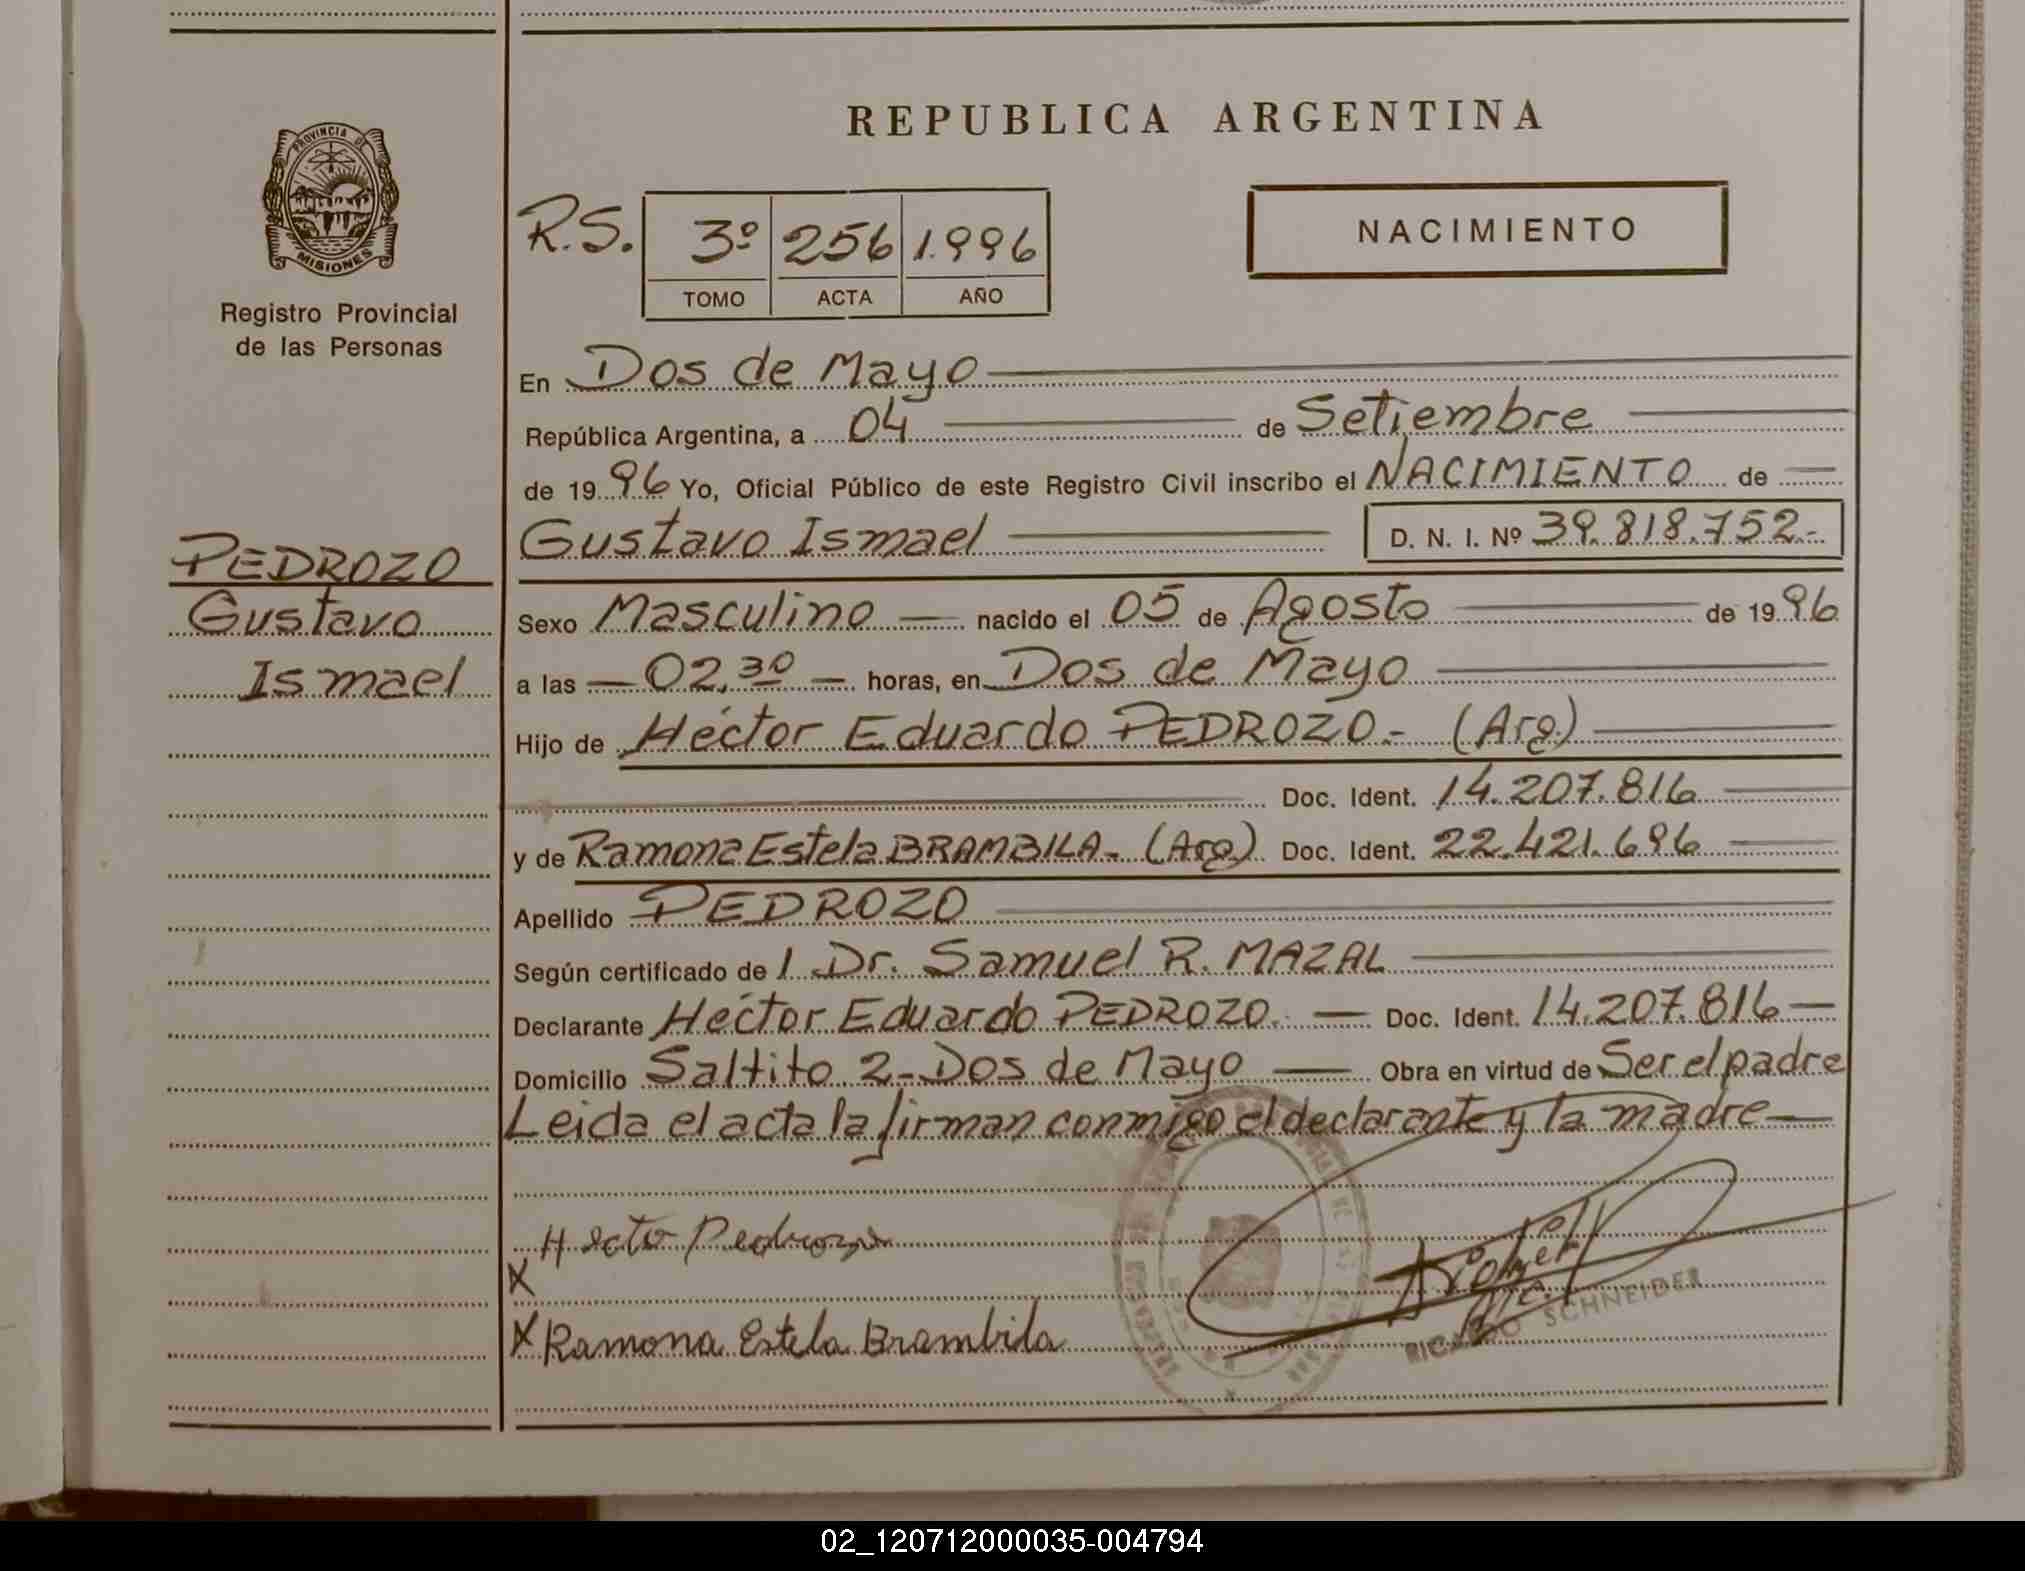 PROVINCIA DE
MISIONES
Registro Provincial
de las Personas
PEDROZO
Gustavo
Ismael
REPUBLICA ARGENTINA
R.S. 3º 256 1.996
TOMO ACTA AÑO
NACIMIENTO
En Dos de Mayo
República Argentina, a 04 de Setiembre
de 1996 Yo, Oficial Público de este Registro Civil inscribo el NACIMIENTO de
Gustavo Ismael D. N. I. Nº 39.818.752.-
Sexo Masculino nacido el 05 de Agosto de 1996
a las 02,30 horas, en Dos de Mayo
Hijo de Héctor Eduardo PEDROZO.- (Arg.)
Doc. Ident. 14.207.816
y de Ramona Estela BRAMBILA.- (Arg.) Doc. Ident. 22.421.696
Apellido PEDROZO
Según certificado de l Dr. Samuel R. MAZAL
Declarante Héctor Eduardo PEDROZO. Doc. Ident. 14.207.816
Domicilio Saltito 2-Dos de Mayo Obra en virtud de Ser el padre
Leida el acta la firman conmigo el declarante y la madre
Hecto Pedrozo
X
X Ramona Estela Brambila
RICARDO SCHNEIDER
02_120712000035-004794